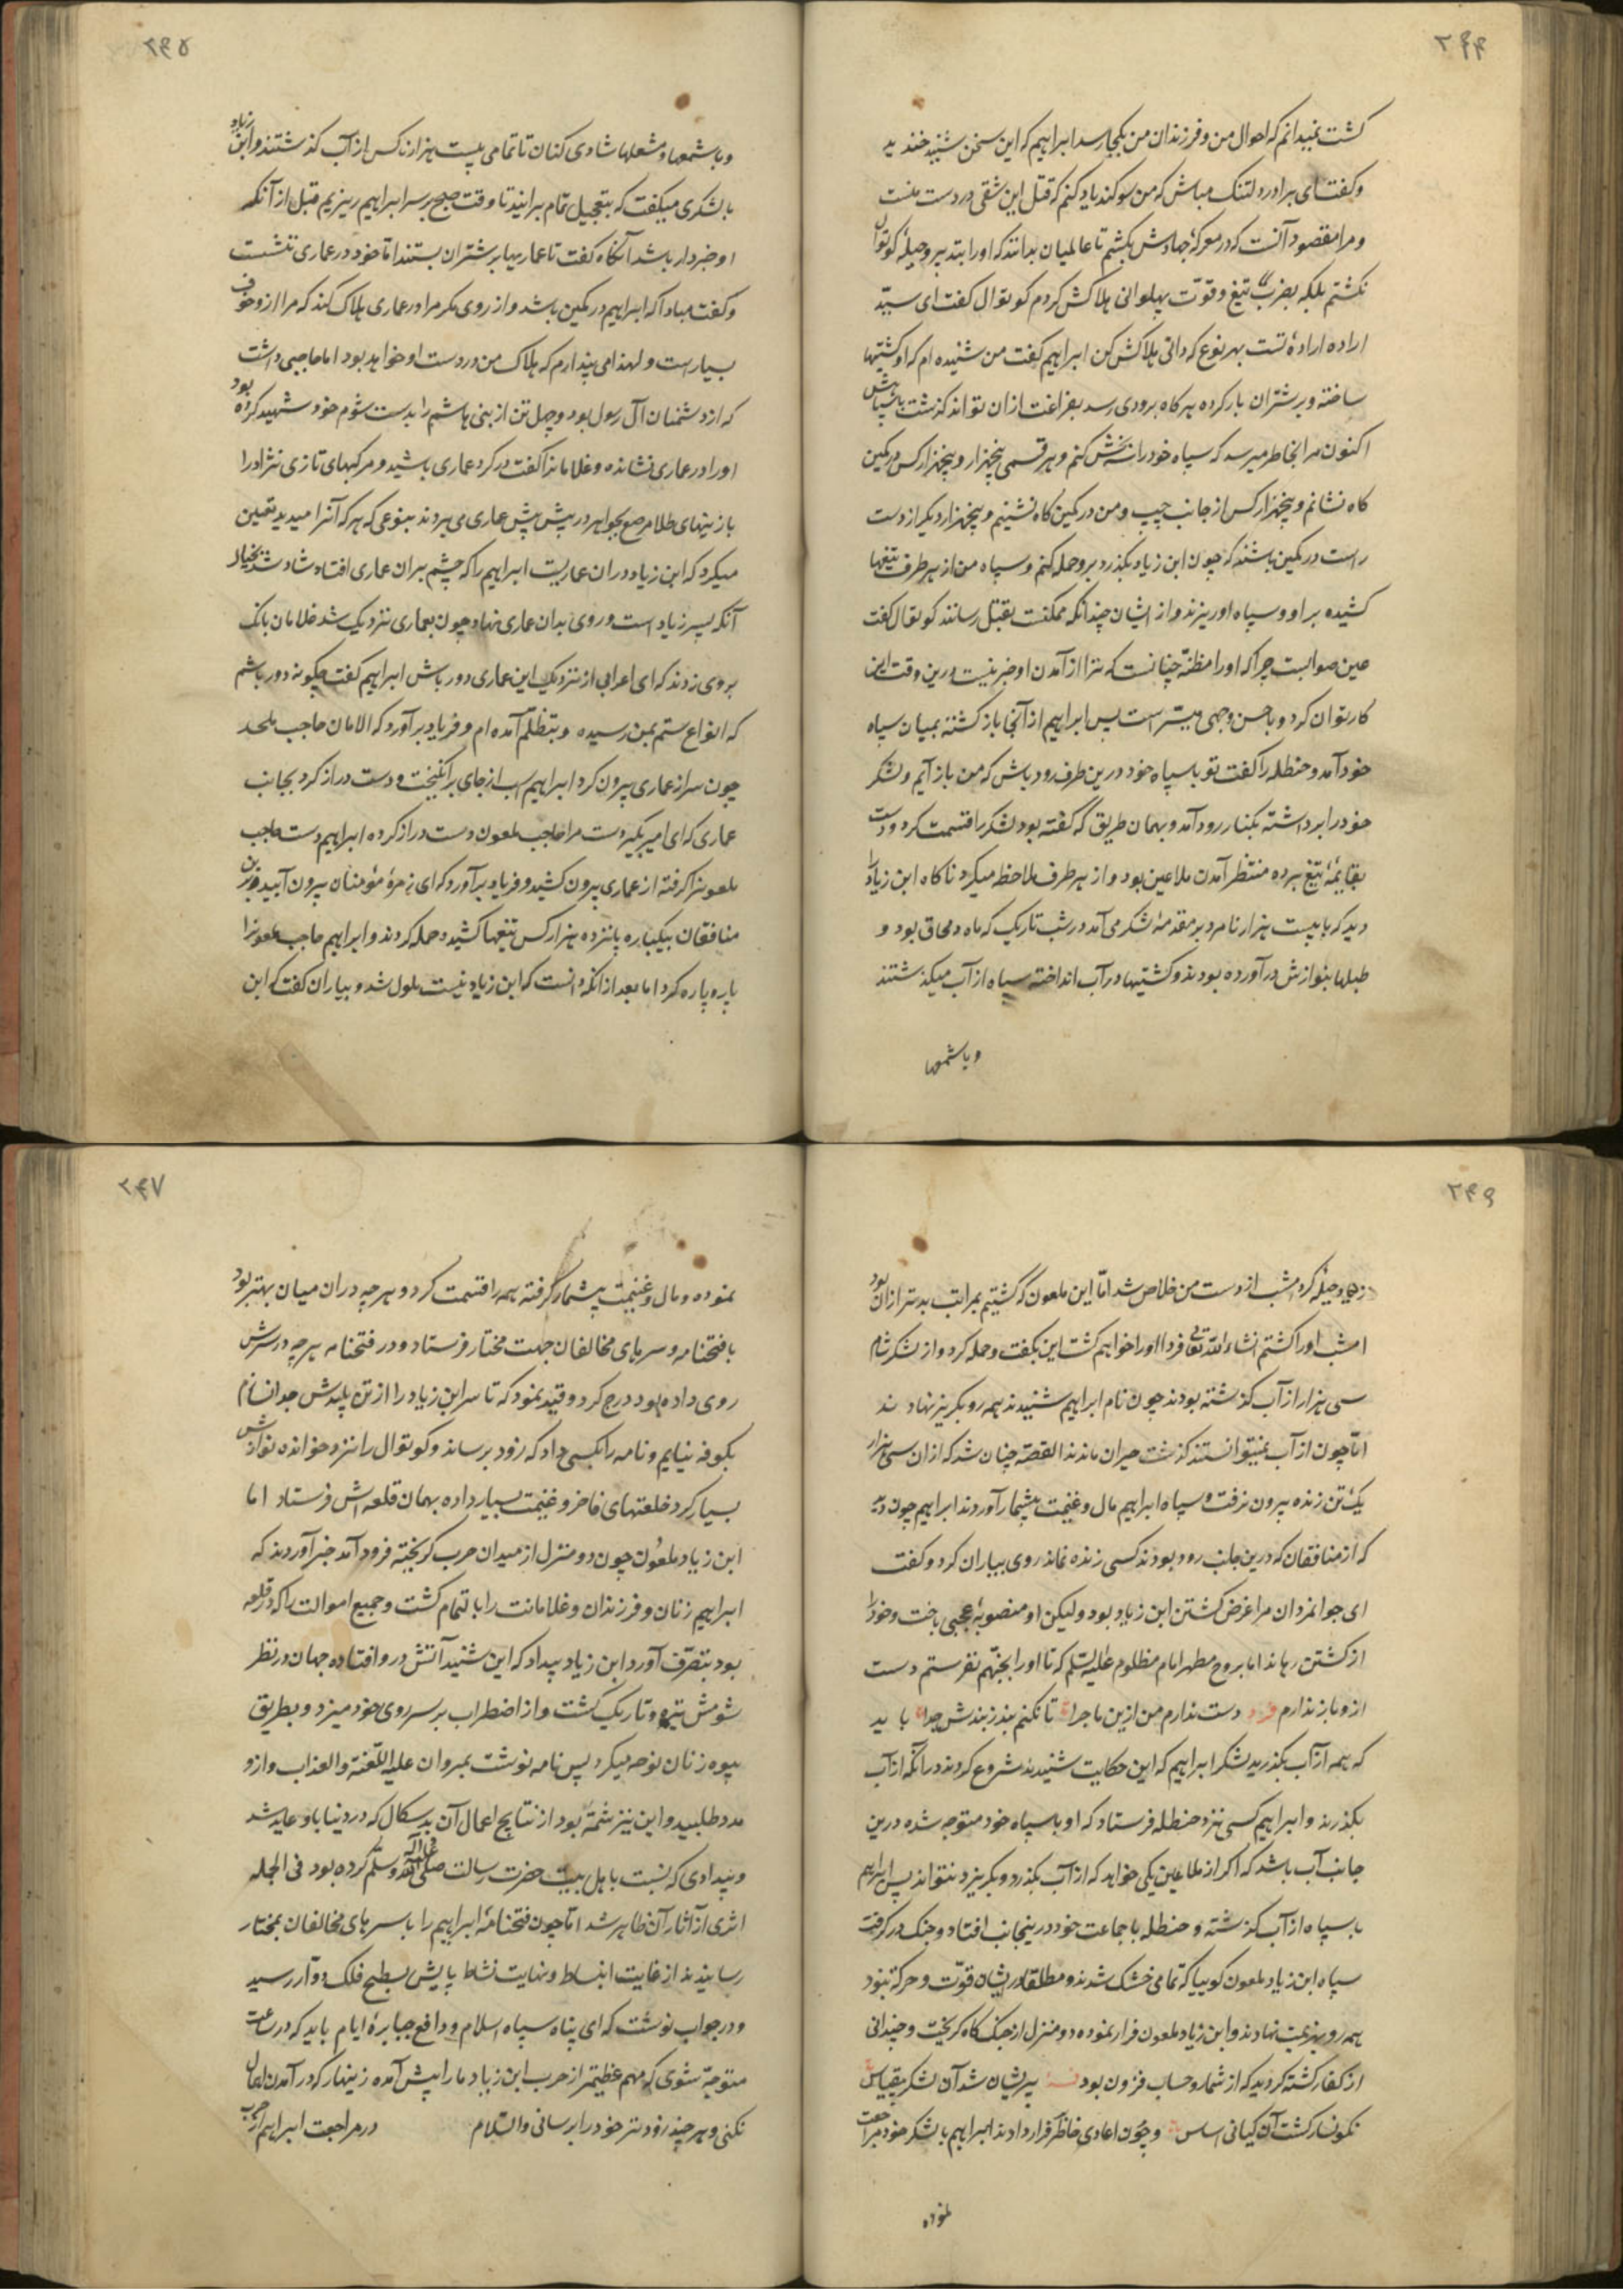 ۲۴۴
گشت نمیدانم که احوال من و فرزندان من بکجا رسد ابراهیم که این سخن شنید خندید
و گفت ای برادر دلتنک مباش که من سوکند یاد کنم که قتل این شقی در دست منست
و مرا مقصود آنست که در معرکهٔ جهادش بکشم تا عالمیان بدانند که او را بتدبیر و حیلهٔ کوتوال
نکشتم بلکه بضرب تیغ و قوّت پهلوانی هلاکش کردم کوتوال گفت ای سیّد
اراده ارادهٔ تست بهر نوع که دانی هلاکش کن ابراهیم گفت من شنیده ام که او کشتیها
ساخته و بر شتران بار کرده هر کاه برودی رسد بفراغت ازان تواند گذشت با سپاهش
اکنون مرا بخاطر میرسد که سپاه خود را سه بخش کنم و هر قسمی پنجهزار و پنجهزار کس در کمین
کاه نشانم و پنجهزار کس از جانب چپ و من در کمین کاه نشینم و پنجهزار دیگر از دست
راست در کمین باشند که چون ابن زیاد بگذرد برو حمله کنم و سپاه من از هر طرف تیغها
کشیده بر او و سپاه او ریزند و از ایشان چندانکه ممکنست بقتل رسانند کوتوال گفت
عین صوابست چرا که او را مظنّه چنانست که ترا از آمدن او خبر نیست درین وقت این
کار توان کرد و باحسن وجهی میسّر است پس ابراهیم از آنجا باز کشته بمیان سپاه
خود آمد و حنظله را گفت تو با سپاه خود درین طرف رود باش که من باز آیم و لشکر
خود را برداشته بکنار رود آمد و بهمان طریق که گفته بود لشکر را قسمت کرد و دست
بقایمهٔ تیغ برده منتظر آمدن ملاعین بود و از هر طرف ملاحظه میکرد ناکاه ابن زیاد را
دید که با بیست هزار نامرد بر مقدمهٔ لشکر می آمد در شب تاریک که ماه در محاق بود و
طبلها بنوازش در آورده بودند و کشتیها در آب انداخته سپاه از آب میکذشتند
و با شمعها
۲۴۵
و با شمعها و مشعلها شادی کنان تا تمامی بیست هزار کس از آب کذشتند و ابن زیاد
با لشکری میکفت که بتعجیل تمام برانید تا وقت صبح بر سر ابراهیم ریزیم قبل از آنکه
او خبردار باشد آنکاه گفت تا عماریها بر شتران بستند امّا خود در عماری ننشست
و کفت مبادا که ابراهیم در کمین باشد و از روی مکر مرا در عماری هلاک کند که مرا ازو خوف
بسیار است و لهذا می پندارم که هلاک من در دست او خواهد بود اما حاجبی داشت
که از دشمنان آل رسول بود و چهل تن از بنی هاشم را بدست شوم خود شهید کرده بود
او را در عماری نشانده و غلامانرا کفت در کرد عماری باشید و مرکبهای تازی نژاد را
با زینهای طلا مرصع بجواهر در پیش پیش عماری می بردند بنوعی که هر که آنرا میدید تعیین
میکرد که ابن زیاد دران عماریست ابراهیم را که چشم بران عماری افتاد شاد شد بخیال
آنکه پسر زیاد است و روی بدان عماری نهاد چون بعماری نزدیک شد غلامان بانک
بروی زدند که ای اعرابی از نزدیک این عماری دور باش ابراهیم گفت چکونه دور باشم
که انواع ستم بمن رسیده و بتظلّم آمده ام و فریاد برآورد که الامان حاجب ملحد
چون سر از عماری بیرون کرد ابراهیم اسب از جای برانکیخت و دست دراز کرد بجانب
عماری که ای امیر بکیر دست مرا حاجب ملعون دست دراز کرده ابراهیم دست حاجب
ملعونرا کرفته از عماری بیرون کشید و فریاد برآورد که ای زمرهٔ مؤمنان بیرون آیید و برین
منافقان بیکباره پانزده هزار کس تیغها کشیده حمله کردند و ابراهیم حاجب ملعونرا
پاره پاره کرد اما بعد از آنکه دانست که ابن زیاد نیست ملول شد و بیاران گفت که این
۲۴۶
و حیله کرد امشب از دست من خلاص شد امّا این ملعون که کشتیم بمراتب بدتر ازان بود
امشب او را کشتم انشاء الله تعالی فردا او را خواهیم کشت این بگفت و حمله کرد و از لشکر شام
سی هزار از آب کذشته بودند چون نام ابراهیم شنیدند همه رو بکریز نهادند
امّا چون از آب نمیتوانستند کذشت حیران ماندند القصّه چنان شد که ازان سی هزار
یک تن زنده بیرون نرفت و سپاه ابراهیم مال و غنیمت بیشمار آوردند ابراهیم چون دید
که از منافقان که درین جانب رود بودند کسی زنده نماند روی بیاران کرد و کفت
ای جوانمردان مرا غرض کشتن ابن زیاد بود ولیکن او منصوبهٔ عجبی باخت و خود را
از کشتن رهاند اما بروح مطهر امام مظلوم علیه السّلم که تا او را بجهنّم نفرستم دست
ازو باز ندارم فرد دست ندارم من ازین ماجرا تا نکنم بند ز بندش جدا باید
که همه از آب بکذرید لشکر ابراهیم که این حکایت شنیدند شروع کردند در آنکه از آب
بکذرند و ابراهیم کسی نزد حنظله فرستاد که او با سپاه خود متوجه شده درین
جانب آب باشد که اکر از ملاعین یکی خواهد که از آب بکذرد و بکریزد نتواند پس ابراهیم
با سپاه از آب کذشته و حنظله با جماعت خود درینجانب افتاد و جنک در کرفت
سپاه ابن زیاد ملعون کوییا که تمامی خشک شدند و مطلقا در ایشان قوّت و حرکة نبود
همه رو بهزیمت نهادند و ابن زیاد ملعون فرار نموده دو منزل از جنک کاه کریخت و چندانی
از کفار کشته کردید که از شمار و حساب فزون بود پریشان شد آن لشکر بیقیاس
نکونسار کشت آن کیانی اساس و چون اعادی خاطر فرار دادند ابراهیم با لشکر خود مراجعت
نموده
۲۴۷
نموده و مال و غنیمت بیشمار کرفته همه را قسمت کرد و هر چه دران میان بهتر بود
با فتحنامه و سرهای مخالفان جهت مختار فرستاد و در فتحنامه هر چه در سرش
روی داده بود درج کرد و قید نمود که تا سر ابن زیاد را از تن پلیدش جدا نسازم
بکوفه نیایم و نامه را بکسی داد که زود برساند و کوتوال را نزد خوانده نوازش
بسیار کرد خلعتهای فاخر و غنیمت بسیار داده بهمان قلعه اش فرستاد اما
ابن زیاد ملعون چون دو منزل از میدان حرب کریخته فرود آمد خبر آوردند که
ابراهیم زنان و فرزندان و غلامانت را بالتمام کشت و جمیع اموالت را که در قلعه
بود بتصرّف آورد ابن زیاد بیداد که این شنید آتش درو افتاده جهان در نظر
شومش تیره و تاریک کشت و از اضطراب بر سر روی خود میزد و بطریق
بیوه زنان نوحه میکرد پس نامه نوشت بمروان علیه اللّعنة والعذاب و ازو
مدد طلبید و این نیز شمّهٔ بود از نتایج اعمال آن بدسکال که در دنیا باو عاید شد
و بیدادی که نسبت باهل بیت حضرت رسالت صلی الله علیه وآله وسلّم کرده بود فی الجمله
اثری از آثار آن ظاهر شد امّا چون فتحنامهٔ ابراهیم را با سرهای مخالفان بمختار
رسانیدند از غایت انبساط و نهایت نشاط پایش بسطح فلک دوّار رسید
و در جواب نوشت که ای پناه سپاه اسلام و دافع جبابرهٔ ایام باید که در ساعت
متوجّه شوی که مهم عظیمتر از حرب ابن زیاد ما را پیش آمده زینهار که در آمدن اهمال
نکنی و هر چند زودتر خود را برسانی والسّلام در مراجعت ابراهیم از حرب